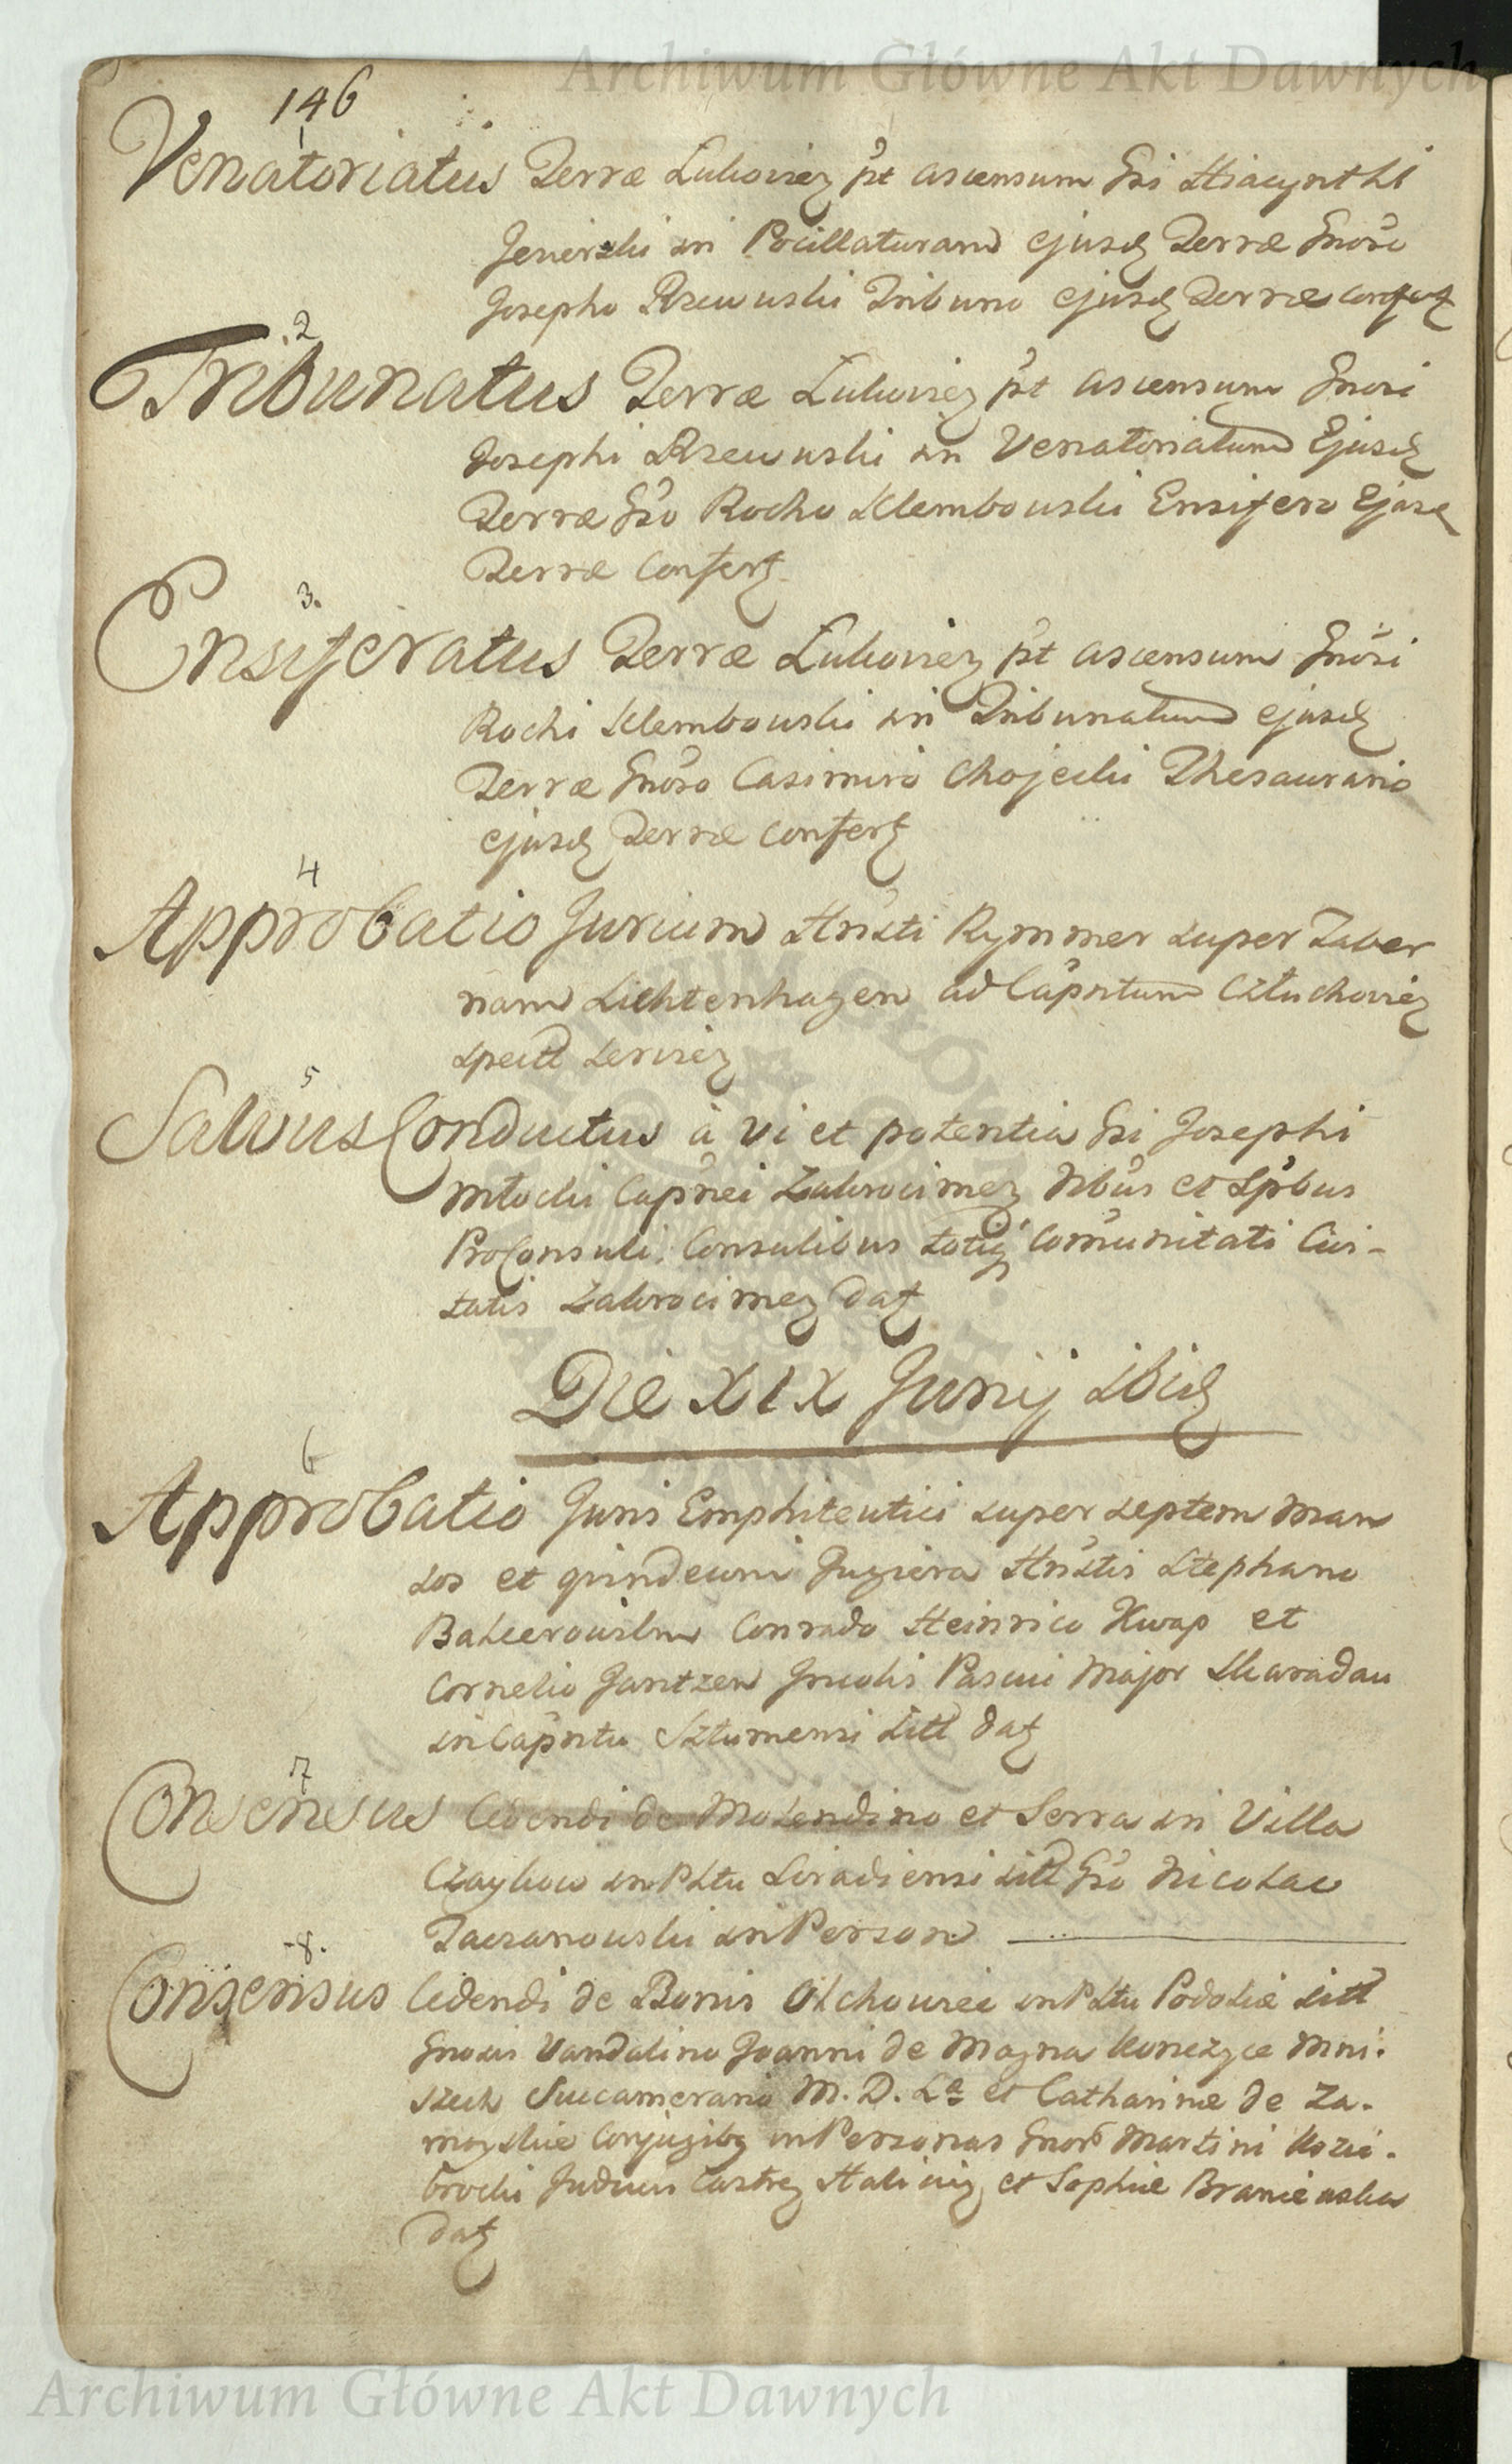 Archiwum Główne Akt Dawnych
146
1
Venatoriatus Terræ Lukovien pt ascensum Gsi Hiacynthi
Jeuerski in Pocillaturam ejusd Terræ Gnoso
Josepho Rzewuski Tribuno ejusd Terræ confert
2
Tribunatus Terræ Lukovien pt ascensum Gnosi
Josephi Rzewuski in Venatoriatum Ejusd
Terræ Gso Rocho Klembowski Ensifero Ejusd
Terræ Confert
3.
Ensiferatus Terræ Lukovien pt ascensum Gnosi
Rochi Klembowski in Tribunatum ejusd
Terræ Gnoso Casimiro Chojecki Thesaurario
ejusd Terræ confert
4
Approbatio Jurium Hnsti Rymmer super Taber
nam Lichtenhagen ad Capntum Człuchovien
spectt servien
5
Salvus Conductus à vi et potentia Gsi Josephi
Młocki Capnei Zakrocimen Nbus et Spbus
ProConsuli Consulibus totiq Comunitati Civi-
tatis Zakrocimen dat
Die XIX Junij ibid
6
Approbatio Juris Emphiteutici super septem Man
sos et quindecim Jugera Hnstis Stephano
Conrado Heinrico Kwap et
Cornelio Jantzen Incolis Pascui Major
in Capntu Sztumensi sitt dat
7
Consensus Cedendi de Molendino et Serra in Villa
in Pltu Siradiensi sitt Gso Nicolao
Taczanowski in Person
8.
Consensus Cedendi de Bonis Olchowiec in Pltu Podoliæ sitt
Gnosis Vandalino Joanni de Magna Konczyce Mni-
szech Succamerario M. D. La et Catharinæ de Za-
moyskie Conjugibq in Personas Gnor Martini Kozie-
brocki Judicis Castren Halicien et Sophiæ
dat
Archiwum Główne Akt Dawnych